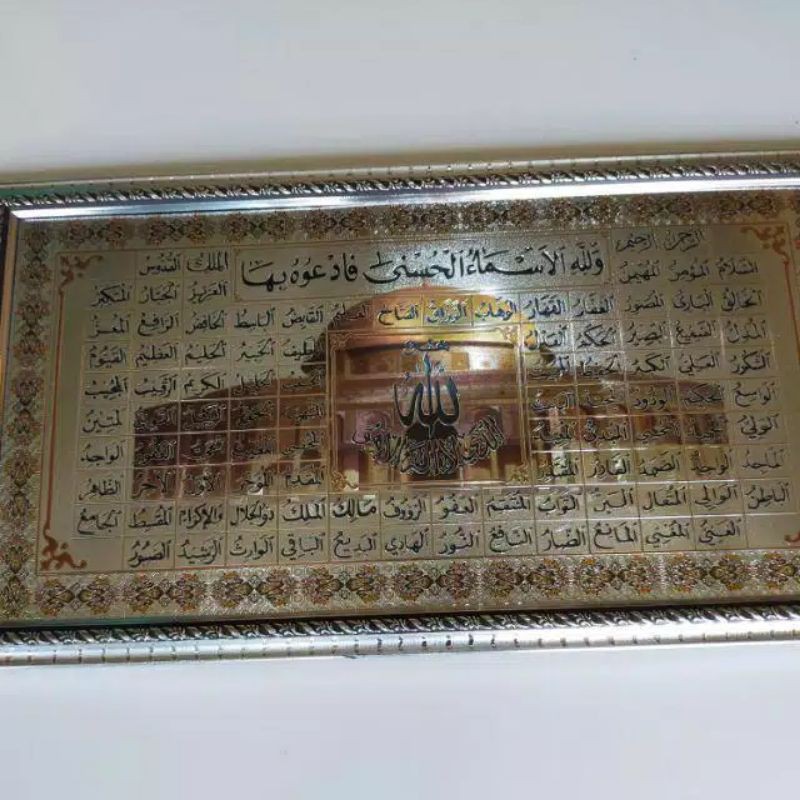 الرحمن الرحيم
وَلِلَّهِ الْأَسْمَاءُ الْحُسْنَى فَادْعُوهُ بِهَا
الملك القدوس
السلام المؤمن المهيمن العزيز الجبار المتكبر
الخالق البارئ المصور الغفار القهار الوهاب الرزاق الفتاح العليم القابض الباسط الخافض الرافع المعز
المذل السميع البصير الحكم العدل اللطيف الخبير الحليم العظيم
الشكور العلي الكبير الحفيظ الجليل الكريم الرقيب المجيب
الله
الواسع الحكيم الودود المتين
الولي المحصي المبدئ الواجد
الماجد الواحد الصمد القادر المقتدر المقدم المؤخر الأول الآخر الظاهر
الباطن الوالي المتعال البر التواب المنتقم العفو الرؤوف مالك الملك ذو الجلال والإكرام المقسط الجامع
الغني المغني المانع الضار النافع النور الهادي البديع الباقي الوارث الرشيد الصبور